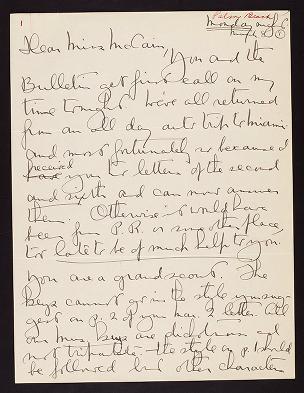 1
Palm Beach
Monday night
Mar 8
Dear Miss McCain,
You and the
Bulletin get first call on my
time tonight. We've all returned
from an all day auto trip to Miami
and most fortunately, so because I
received
have your two letters of the second
and sixth and can now answer
them. Otherwise it would have
been from P.R. or some other place,
too late to be of much help to you.
You are a grand scout. The
keys cannot go in the style you sug-
gest on p. 2 of your Mar. 2 letter. All
our keys are dichotomous and
not tripartite. The style on p. 1 should
be followed but other characters